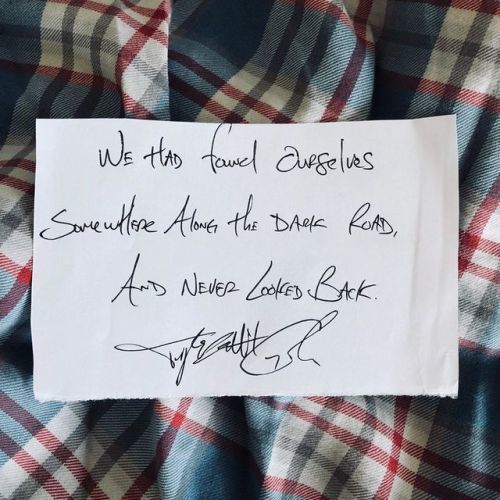 We Had found Ourselves
Somewhere Along the Dark Road,
And Never Looked Back.